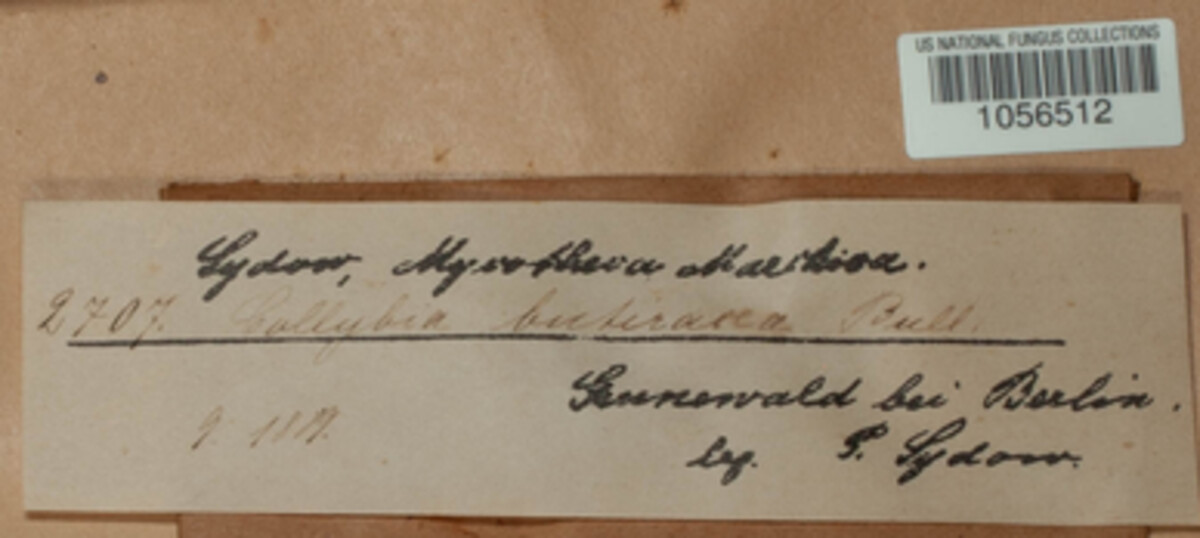 US NATIONAL FUNGUS COLLECTIONS
1056512
Sydow, Mycotheca Marchica.
2707. Collybia butiracea Bull.
Grunewald bei Berlin.
9.
leg. P. Sydow.